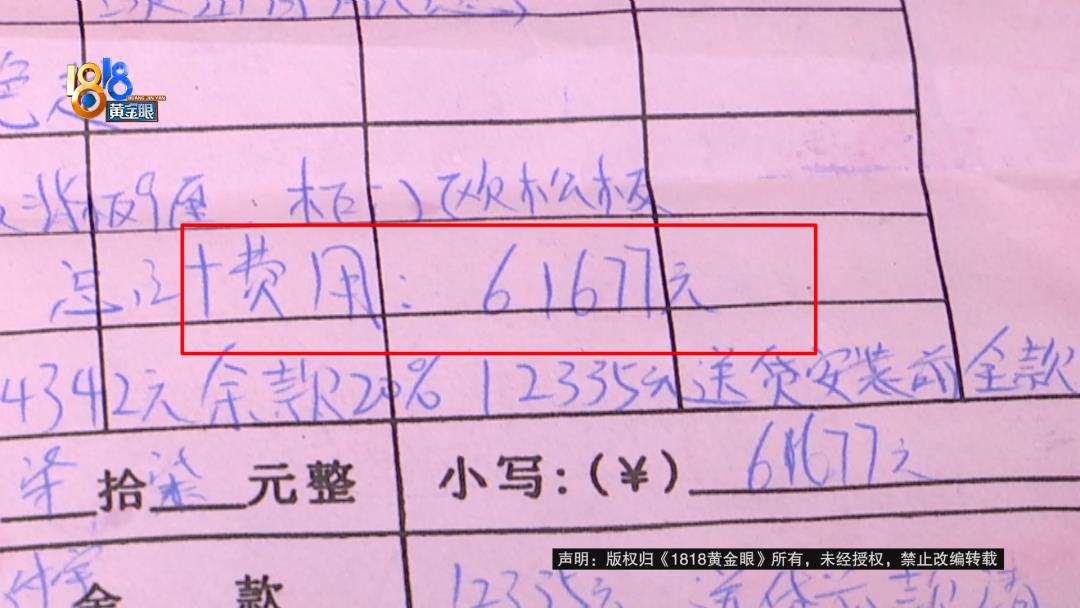 1818
HUANG JIN YAN
黄金眼
色
背板9厘 柜门欧松板
总计费用：61677元
4342元余款20% 12335元送货安装前全款
柒拾柒元整 小写：(￥)61677元
付定
金 款 12335元 送货前款清
声明：版权归《1818黄金眼》所有，未经授权，禁止改编转载